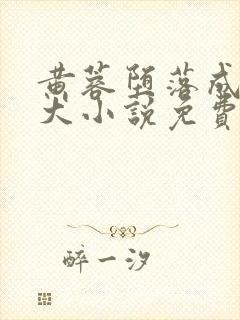 黄蓉堕落成
大小説免費
醉一汐